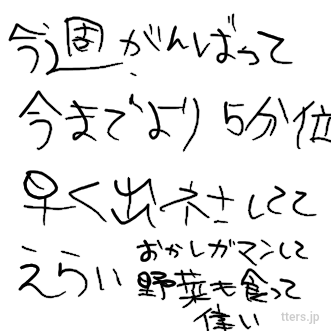 今週がんばって
今までより5分位
早く出社してて
えらい
おかしガマンして
野菜も食って
偉い
tters.jp